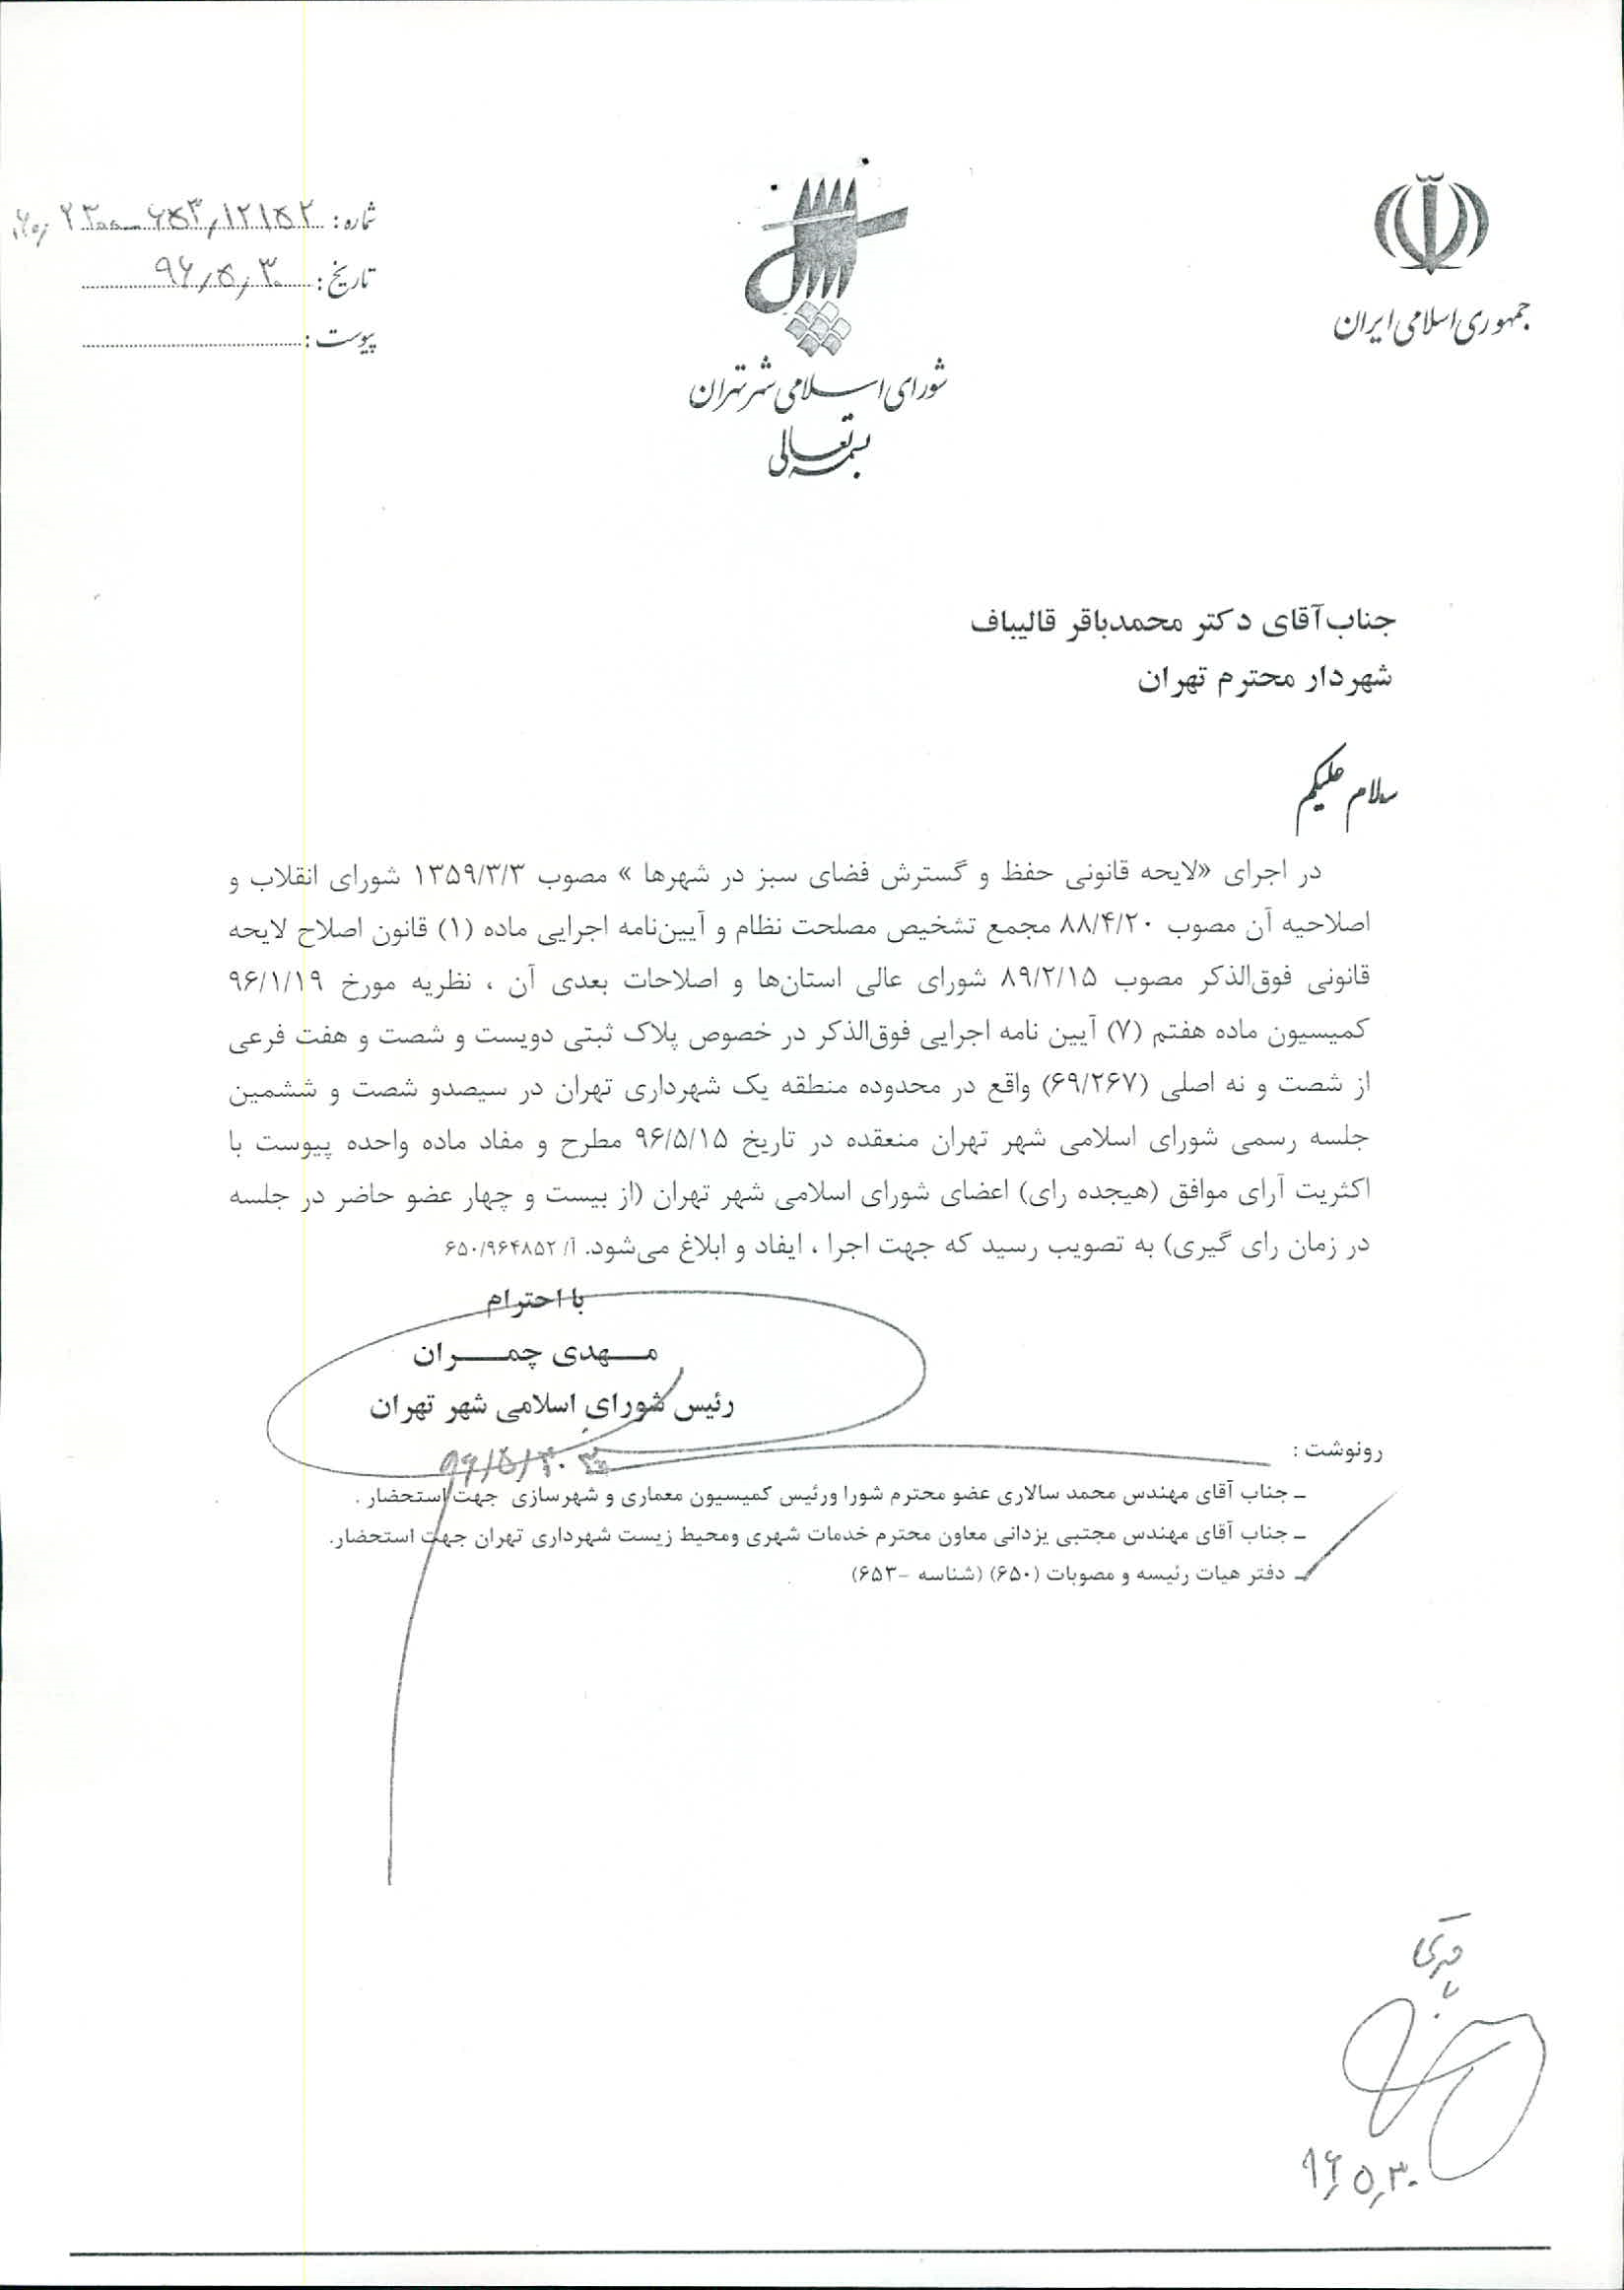 جمهوری اسلامی ایران
شورای اسلامی شهر تهران
بسمه تعالی
شماره:
تاریخ: ۹۶/۵/۳۰
پیوست:
جناب‌آقای دکتر محمدباقر قالیباف
شهردار محترم تهران
سلام علیکم
در اجرای «لایحه قانونی حفظ و گسترش فضای سبز در شهرها » مصوب ۱۳۵۹/۳/۳ شورای انقلاب و
اصلاحیه آن مصوب ۸۸/۴/۲۰ مجمع تشخیص مصلحت نظام و آیین‌نامه اجرایی ماده (۱) قانون اصلاح لایحه
قانونی فوق‌الذکر مصوب ۸۹/۲/۱۵ شورای عالی استان‌ها و اصلاحات بعدی آن ، نظریه مورخ ۹۶/۱/۱۹
کمیسیون ماده هفتم (۷) آیین نامه اجرایی فوق‌الذکر در خصوص پلاک ثبتی دویست و شصت و هفت فرعی
از شصت و نه اصلی (۶۹/۲۶۷) واقع در محدوده منطقه یک شهرداری تهران در سیصدو شصت و ششمین
جلسه رسمی شورای اسلامی شهر تهران منعقده در تاریخ ۹۶/۵/۱۵ مطرح و مفاد ماده واحده پیوست با
اکثریت آرای موافق (هیجده رای) اعضای شورای اسلامی شهر تهران (از بیست و چهار عضو حاضر در جلسه
در زمان رای گیری) به تصویب رسید که جهت اجرا ، ایفاد و ابلاغ می‌شود. آ/ ۶۵۰/۹۶۴۸۵۲
با احترام
مهدی چمران
رئیس شورای اسلامی شهر تهران
۹۶/۵/۳۰
رونوشت :
ـ جناب آقای مهندس محمد سالاری عضو محترم شورا ورئیس کمیسیون معماری و شهرسازی جهت استحضار .
ـ جناب آقای مهندس مجتبی یزدانی معاون محترم خدمات شهری ومحیط زیست شهرداری تهران جهت استحضار.
ـ دفتر هیات رئیسه و مصوبات (۶۵۰) (شناسه -۶۵۳)
۹۶/۵/۳۰